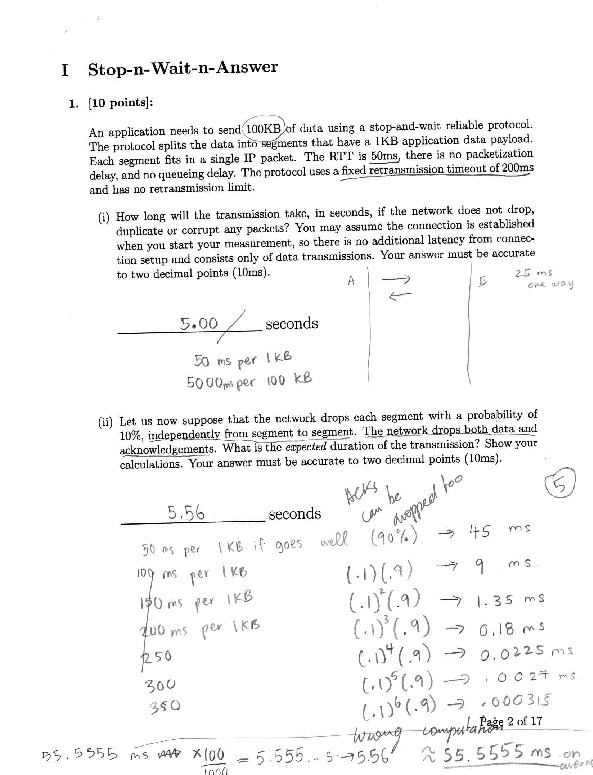 I Stop-n-Wait-n-Answer
1. [10 points]:
An application needs to send 100KB of data using a stop-and-wait reliable protocol.
The protocol splits the data into segments that have a 1KB application data payload.
Each segment fits in a single IP packet. The RTT is 50ms, there is no packetization
delay, and no queueing delay. The protocol uses a fixed retransmission timeout of 200ms
and has no retransmission limit.
(i) How long will the transmission take, in seconds, if the network does not drop,
duplicate or corrupt any packets? You may assume the connection is established
when you start your measurement, so there is no additional latency from connec-
tion setup and consists only of data transmissions. Your answer must be accurate
to two decimal points (10ms).
A → B 25 ms
← one way
5.00 seconds
50 ms per 1KB
5000ms per 100 KB
(ii) Let us now suppose that the network drops each segment with a probability of
10%, independently from segment to segment. The network drops both data and
acknowledgements. What is the expected duration of the transmission? Show your
calculations. Your answer must be accurate to two decimal points (10ms).
5
Acks can be dropped too
5.56 seconds
50 ms per 1KB if goes well (90%) → 45 ms
100 ms per 1KB (.1)(.9) → 9 ms.
150 ms per 1KB (.1)²(.9) → 1.35 ms
200 ms per 1KB (.1)³(.9) → 0.18 ms
250 (.1)⁴(.9) → 0.0225 ms
300 (.1)⁵(.9) → .0027 ms
350 (.1)⁶(.9) → .000315
Page 2 of 17
wrong computation
55.5555 ms x100/1000 = 5.555... s → 5.56 ≈ 55.5555 ms on